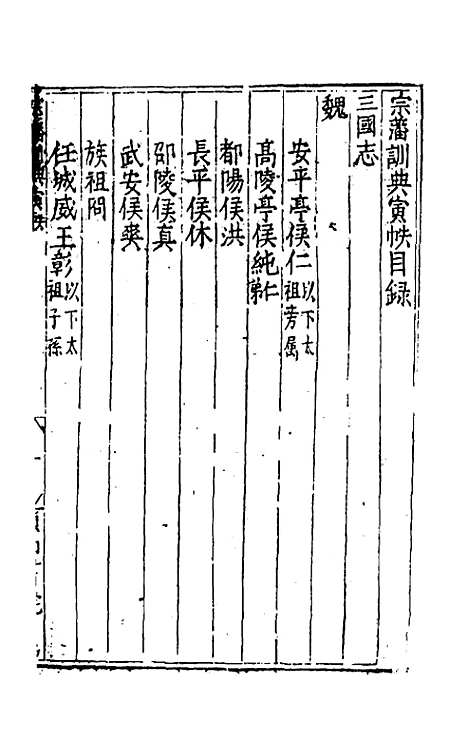 宗藩訓典寅帙目録
三國志
魏
安平亭侯仁以下太祖旁属
髙陵亭侯純仁弟
都陽侯洪
長平侯休
邵陵侯真
武安侯爽
族祖問
任城威王彰以下太祖子孫